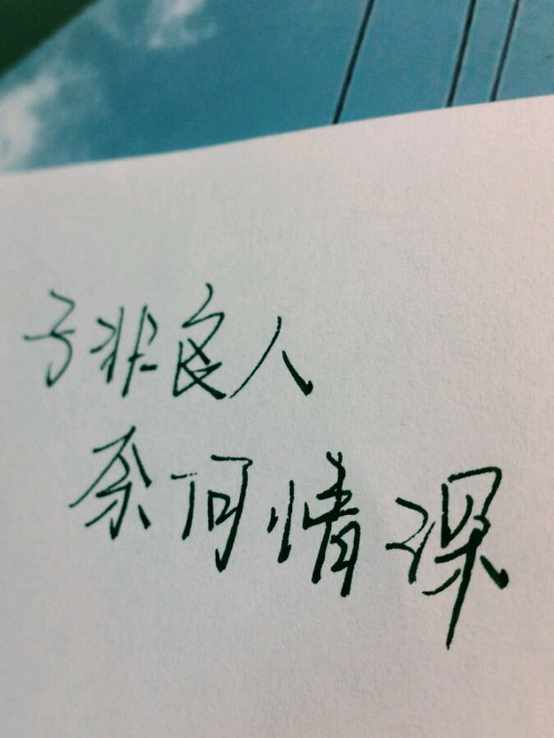 子非良人
奈何情深